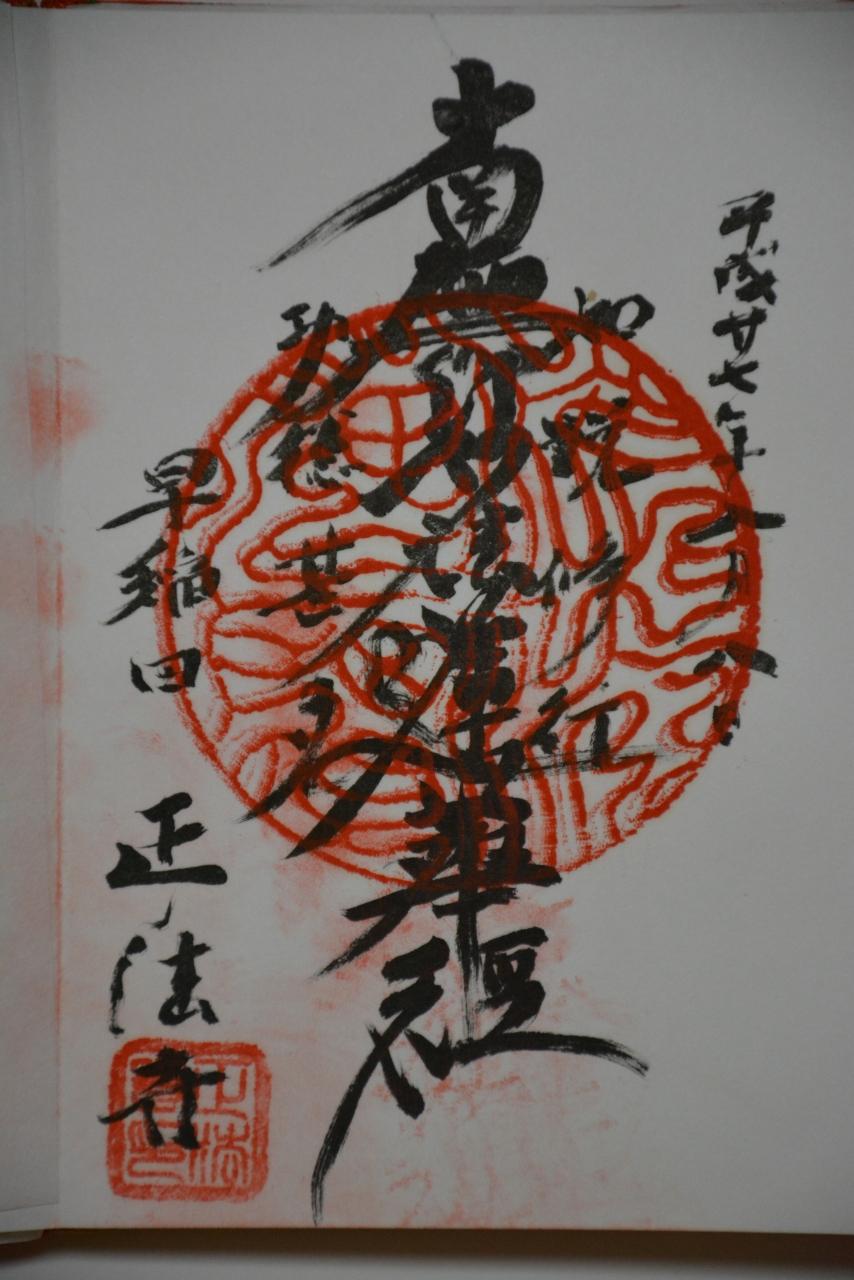 平成廿七年月八日
如説修行
南無妙法蓮華經
功徳甚多
早稲田
正法寺